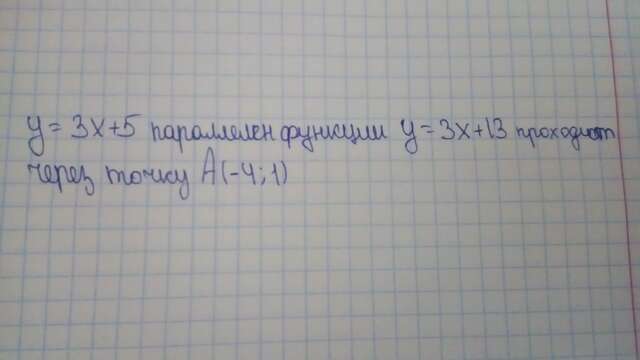 y = 3x+5 параллелен функции y = 3x+13 проходит
через точку A(-4;1)